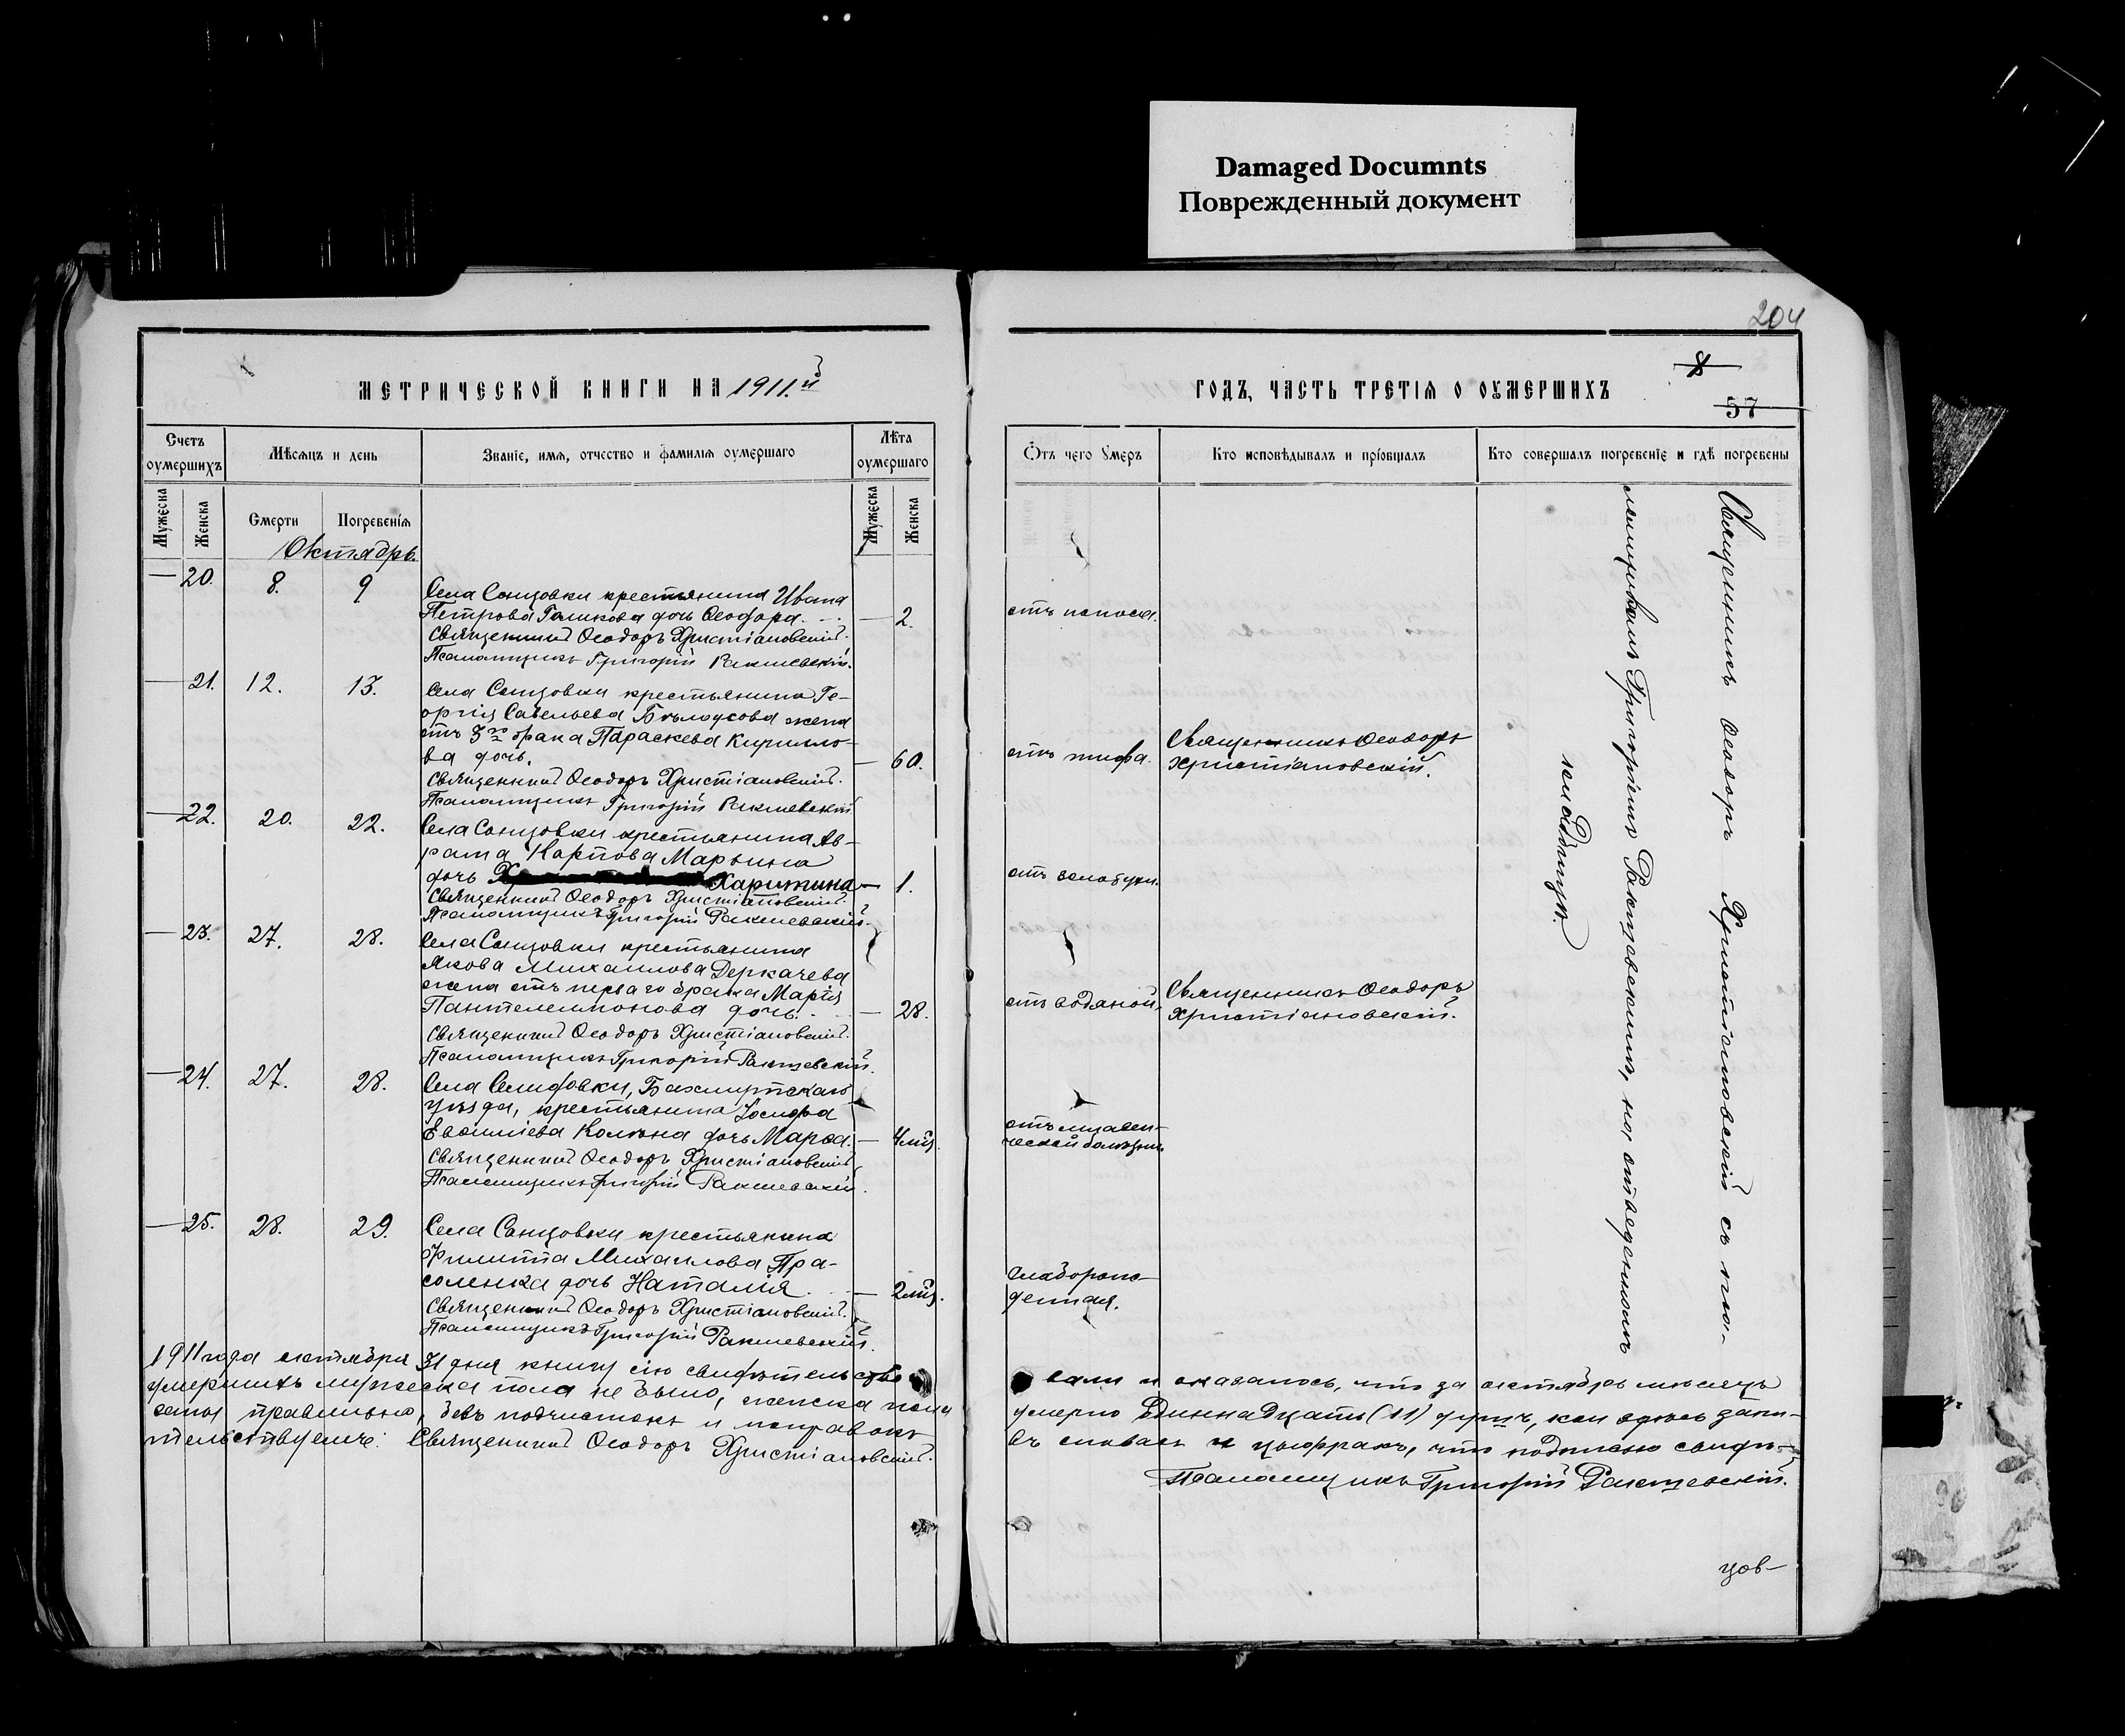 Damaged Documnts
Поврежденный документ
204
МЕТРИЧЕСКОЙ КНИГИ НА 1911.й
ГОДЪ, ЧАСТЬ ТРЕТІѦ О ОУМЕРШИХЪ
8
57
Счетъ оумершихъ
Мѣсѧцъ и день
Званіе, имѧ, отчество и фамиліѧ оумершаго
Лѣта оумершаго
Отъ чего умеръ
Кто исповѣдывалъ и пріобщалъ
Кто совершалъ погребеніе и гдѣ погребены
Мужеска
Женска
Смерти
Погребеніѧ
Мужеска
Женска
Октябрь.
— 20. 8. 9
Села Сонцовки крестьянина Ивана
Петрова Голикова дочь Ѳеодора. — 2.
Священникъ Ѳеодоръ Христіановскій.
Псаломщикъ Григорій Ракшевскій.
отъ поноса.
— 21. 12. 13.
Села Сонцовки крестьянина Ге-
оргія Савельева Бѣлоусова жена
отъ 3го брака Параскева Кирилло-
ва дочь. — 60.
Священникъ Ѳеодоръ Христіановскій.
Псаломщикъ Григорій Ракшевскій
отъ тифа.
Священникъ Ѳеодоръ
Христіановскій.
— 22. 20. 22.
Села Сонцовки крестьянина Ав-
рама Карпова Марьина
дочь Харитина — 1.
Священникъ Ѳеодоръ Христіановскій.
Псаломщикъ Григорій Ракшевскій.
отъ золотухи.
— 23. 27. 28.
Села Сонцовки крестьянина
Якова Михаилова Деркачева
жена отъ перваго брака Марія
Пантелеимонова дочь. — 28.
Священникъ Ѳеодоръ Христіановскій.
Псаломщикъ Григорій Ракшевскій.
отъ водяной.
Священникъ Ѳеодоръ
Христіановскій.
— 24. 27. 28.
Села Селидовки, Бахмутскаго
уѣзда, крестьянина Іосифа
дочь Марѳа. — 4 мѣс.
Священникъ Ѳеодоръ Христіановскій
Псаломщикъ Григорій Ракшевскій.
отъ младен-
ческой болѣзни.
— 25. 28. 29.
Села Сонцовки крестьянина
Филиппа Михаилова Пра-
соленка дочь Наталія. — 2 мѣс.
Священникъ Ѳеодоръ Христіановскій.
Псаломщикъ Григорій Ракшевскій.
слаборож-
денная.
Священникъ Ѳеодоръ Христіановскій съ пса-
ломщикомъ Григоріемъ Ракшевскимъ, на отведенномъ
кладбищѣ.
1911 года октября 31 дня книгу сію свидѣтельство
вали и оказалось, что за октябрь мѣсяцъ
умершихъ мужеска пола не было, женска пола
умерло одиннадцать (11) душъ, кои здѣсь запи-
саны правильно, безъ подчистокъ и поправокъ
въ словахъ и цыфрахъ, что подписью свидѣ-
тельствуемъ: Священникъ Ѳеодоръ Христіановскій.
Псаломщикъ Григорій Ракшевскій.
цов-